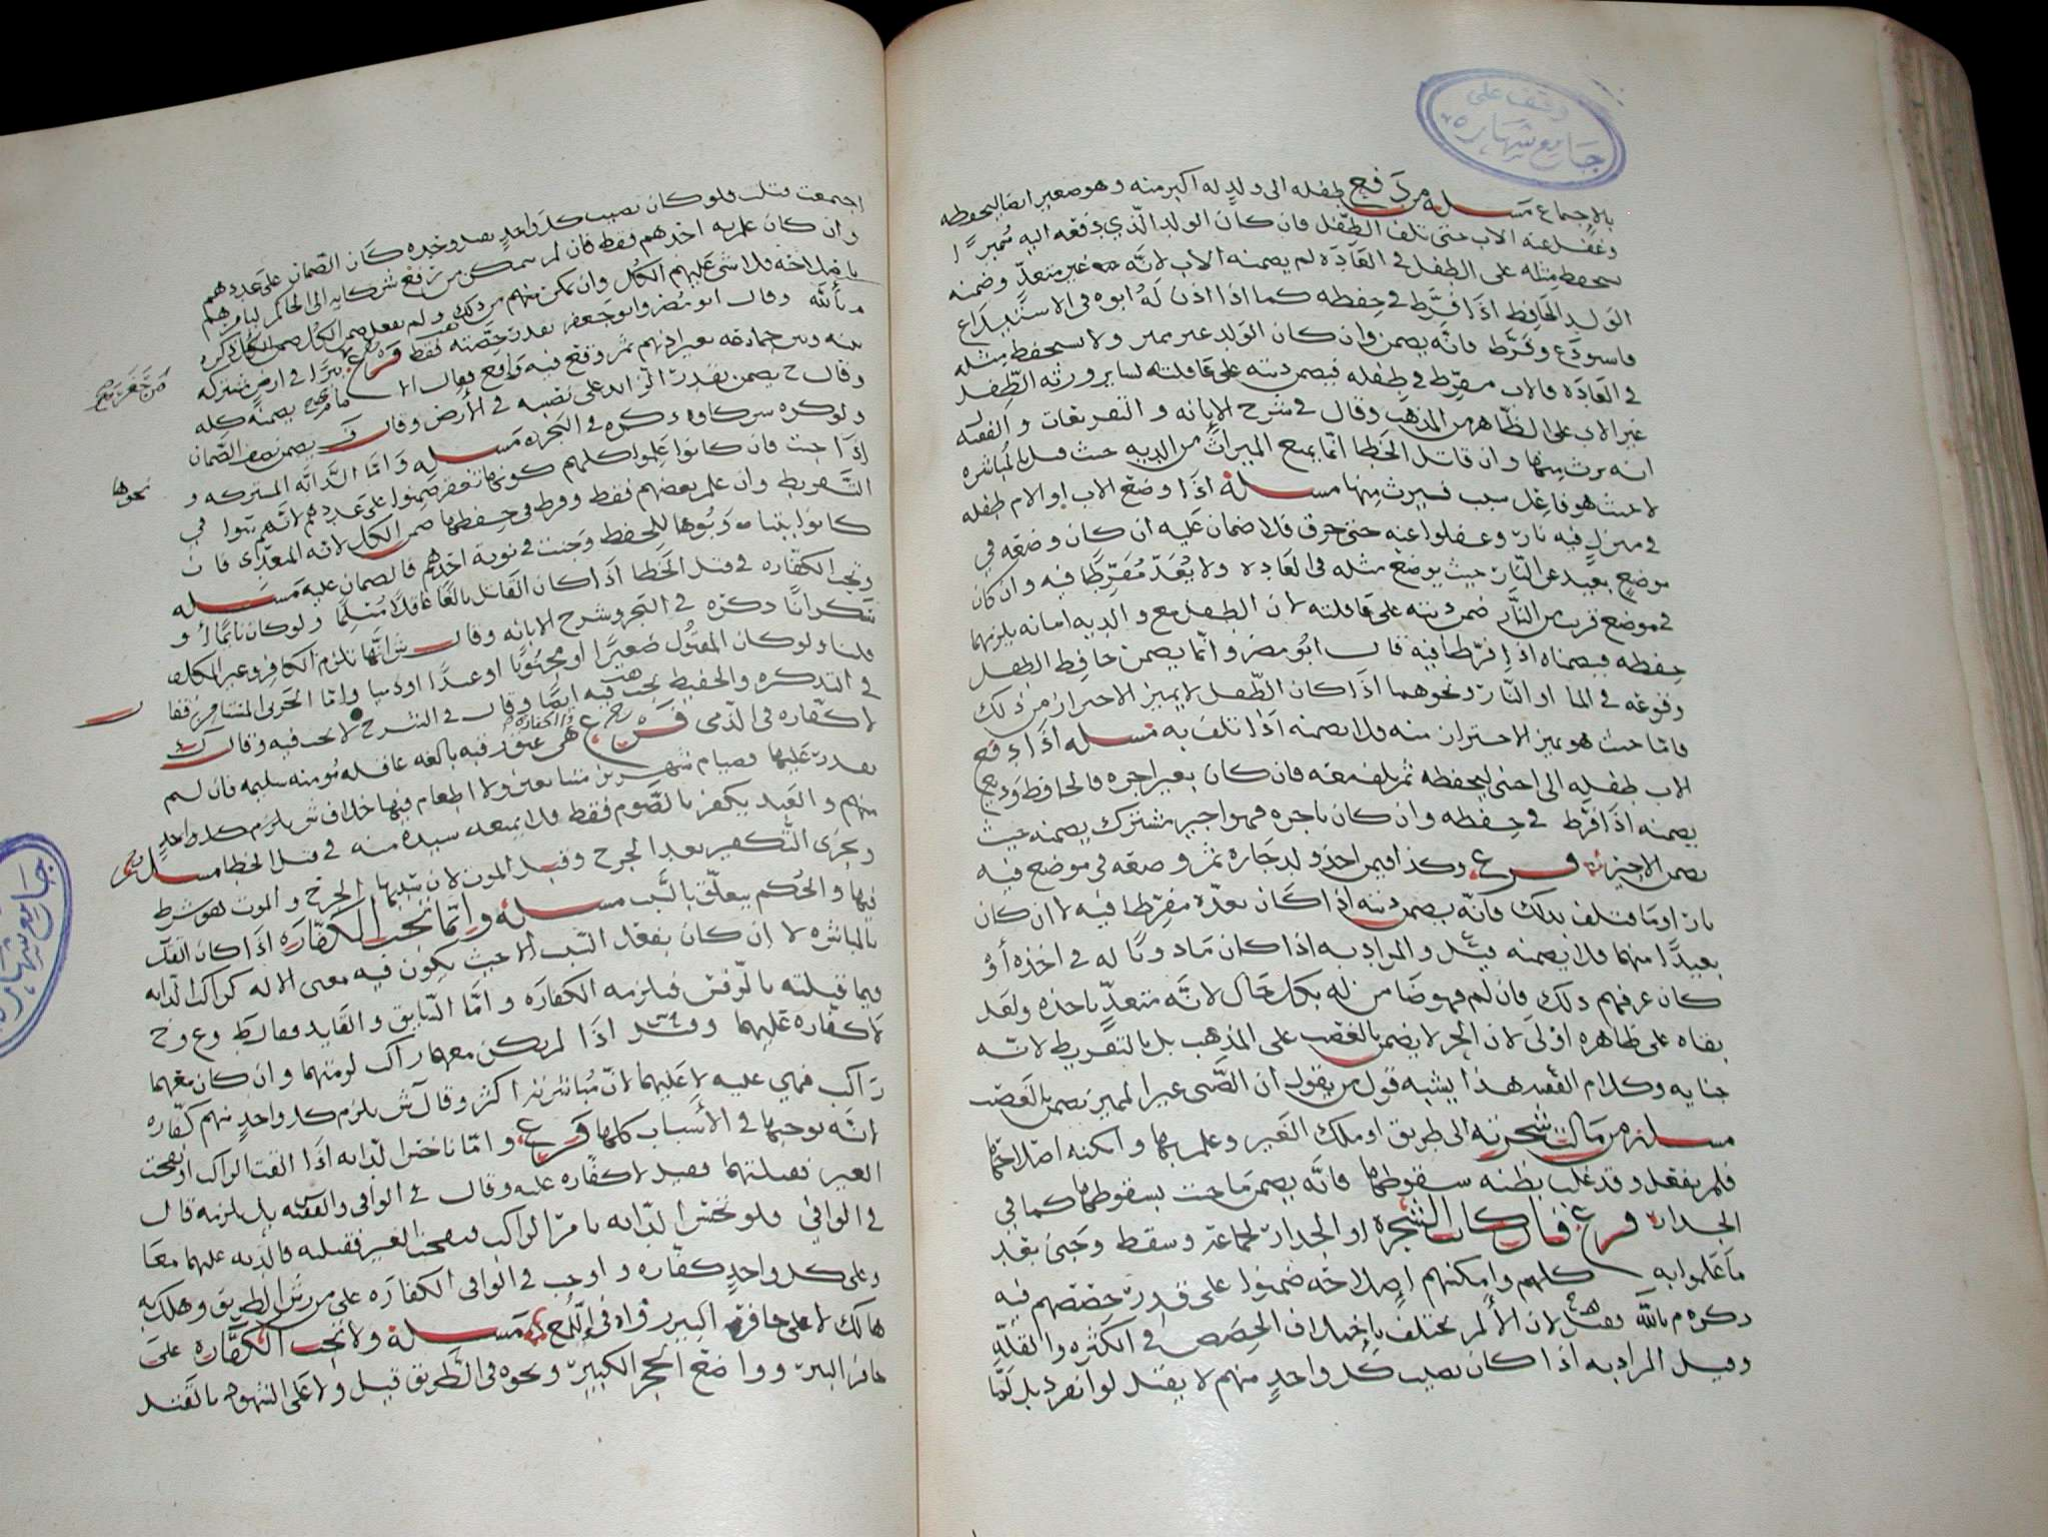 وقف على
جامع شهاره
بالإجماع مسئلة من دفع طفله الى ولدٍ له اكبر منه وهو صغير ايضا ليحفظه
وغفل عنه الاب حتى تلف الطفل فان كان الولد الذي دفعه اليه مميزًا
يحفظ مثله على الطفل في العادة لم يضمنه الاب لانه غير متعدٍّ وضمنه
الولد الحافظ اذا فرّط في حفظه كما اذا اذن له ابوه في الاستيداع
فاستودع وفرّط فانه يضمن وان كان الولد غير مميز ولا يحفظ مثله
في العادة فالاب مفرّط في طفله فيضمن ديته على عاقلته لساير ورثة الطفل
غير الاب على الظاهر من المذهب وقال في شرح الإبانه و التفريعات و الفقيه
انه يرث منها وان قاتل الخطا انما يمنع الميراث من الديه حيث قتل بالمباشره
لا حيث هو فاعل سبب فيرث منها مسئلة اذا وضع الاب او الام طفله
في منزل فيه نار وغفلوا عنه حتى حرق فلا ضمان عليه ان كان وضعه في
موضع بعيد عن النار حيث يوضع مثله في العاده ولا يُعدّ مُفرّطا فيه وان كان
في موضع قرب من النار ضمن ديته على عاقلته لان الطفل مع والديه امانه يلزمهما
حفظه فيضمناه اذا فرّطا فيه قال ابو مضر وانما يضمن حافظ الطفل
وقوعه في الما او النار ونحوهما اذا كان الطفل لا يميز الاحتراز من ذلك
فاما حيث هو يميز الاحتراز منه فلا يضمنه اذا تلف به مسئله اذا دفع
الاب طفله الى اجنبي ليحفظه ثم تلف معه فان كان بغير اجره فالحافظ وديع
يضمنه اذا فرّط في حفظه وان كان باجره فهو اجير مشترك يضمنه حيث
يضمن الاجير فرع وكذا فيمن اخذ ولد جاره ثم وضعه في موضع فيه
نار او ما فتلف بذلك فانه يضمن ديته اذا كان بعده مفرّطا فيه لا ان كان
بعيدًا منهما فلا يضمنه قيل و المراد به اذا كان ماذونًا له في اخذه أو
كان عرفهم ذلك فان لم فهو ضامن له بكل حال لانه متعدٍّ باخذه ولعل
بقاه على ظاهره اولى لان الحر لا يضمن بالغصب على المذهب بل بالتفريط لانه
جنايه وكلام الفقيه هذا يشبه قول من يقول ان الصبي غير المميز يضمن بالغصب
مسئلة من مالت شجرته الى طريق او ملك الغير وعلم بها وامكنه اصلاحها
فلم يفعل وقد غلب بظنه سقوطها فانه يضمن ما جنت بسقوطها كما في
الجدار فرع فان كانت الشجرة او الجدار لجماعة وسقط وجنى بعد
ما علموا به كلهم وامكنهم اصلاحه ضمنوا على قدر حصصهم فيه
ذكره م بالله لان الألم يختلف باختلاف الحصص في الكثره والقلة
وقيل المراد به اذا كان نصيب كل واحدٍ منهم لا يقتل لو انفرد بل لما
اجتمعت قتلت فلو كان نصيب كل واحدٍ يقتل وحده كان الضمان على عددهم
وان كان علم به احدهم فقط فان لم يتمكن من رفع شركايه الى الحاكم ليامرهم
باصلاحه فلا شي عليهم الكل وان تمكن منهم من ذلك ولم يفعل ضمن الكل ذكره
م بالله وقال ابو مضر وابو جعفر بقدر حصته فقط فرع من حفر بيرًا في ارض مشتركه
بينه وبين جماعة بغير اذنهم ثم وقع فيه واقع
وقال ح يضمن بقدر الزايد على نصيبه في الأرض وقال ف يضمن نصف الضمان
ولو كره شركاؤه ذكره في البحر مسئلة واما الدابه المشتركه و
اذا جنت فان كانوا علموا كلهم ضمنوا على عددهم لانهم سوا في
التفريط وان علم بعضهم فقط وفرط في حفظها ضمن الكل لانه المعتدي فان
كانوا للحفظ وجنت في نوبة احدهم فالضمان عليه مسئله
وتجب الكفاره في قتل الخطا اذا كان القاتل بالغًا عاقلًا مسلمًا ولو كان نايمًا او
سكرانًا ذكره في البحر وشرح الابانه وقال ش انها تلزم الكافر وغير المكلف
قلنا ولو كان المقتول صغيرًا او مجنونًا او عبدًا او ذميا واما الحربي المستامن فقال
في التذكره والحفيظ تجب فيه ايضًا وقال في الشرح لا تجب فيه وقال ك
لا كفاره في الذمي فرع وهي عتق رقبه بالغه عاقله مومنه سليمه فان لم
يقدر عليها فصيام شهرين متتابعين ولا اطعام فيها خلاف ش يلزم كل واحدٍ
منهم و العبد يكفر بالصوم فقط فلا يمنعه سيده منه في قتل الخطا مسئله
ويجزي التكفير بعد الجرح وقبل الموت لان سببها الجرح و الموت هو شرط
فيها والحكم يتعلق بالسبب مسئلة وانما تجب الكفاره اذا كان القتل
بالمباشره لا ان كان بفعل السبب الا حيث يكون فيه معنى الاله كراكب الدابه
فيما قتلته بالرفس فيلزمه الكفاره و اما السايق و القايد فقال ط وع وح
لا كفاره عليهما وقيل اذا لم يكن معهما راكب لزمتهما وان كان معهما
راكب فهي عليه لا عليهما لان مباشرته اكثر وقال ش يلزم كل واحدٍ منهم كفاره
انه يوجبها في الأسباب كلها فرع و اما ناخس الدابه اذا القت الراكب او نفحت
الغير فقتلتهما فقيل لا كفاره عليه وقال في الوافي والفقيه بل يلزمه قال
في الوافي فلو نخس الدابه بامر الراكب فنفحت الغير فقتلته فالديه عليهما معًا
وعلى كل واحدٍ كفاره و اوجب في الوافي الكفاره على من رش الطريق وهلك به
هالك لا على حافر البير رواه في اللمع مسئلة ولا تجب الكفاره على
حافر البير و واضع الحجر الكبير ونحوه في الطريق قيل ولا على الشهود بالقتل
نحوها
جامع شهاره